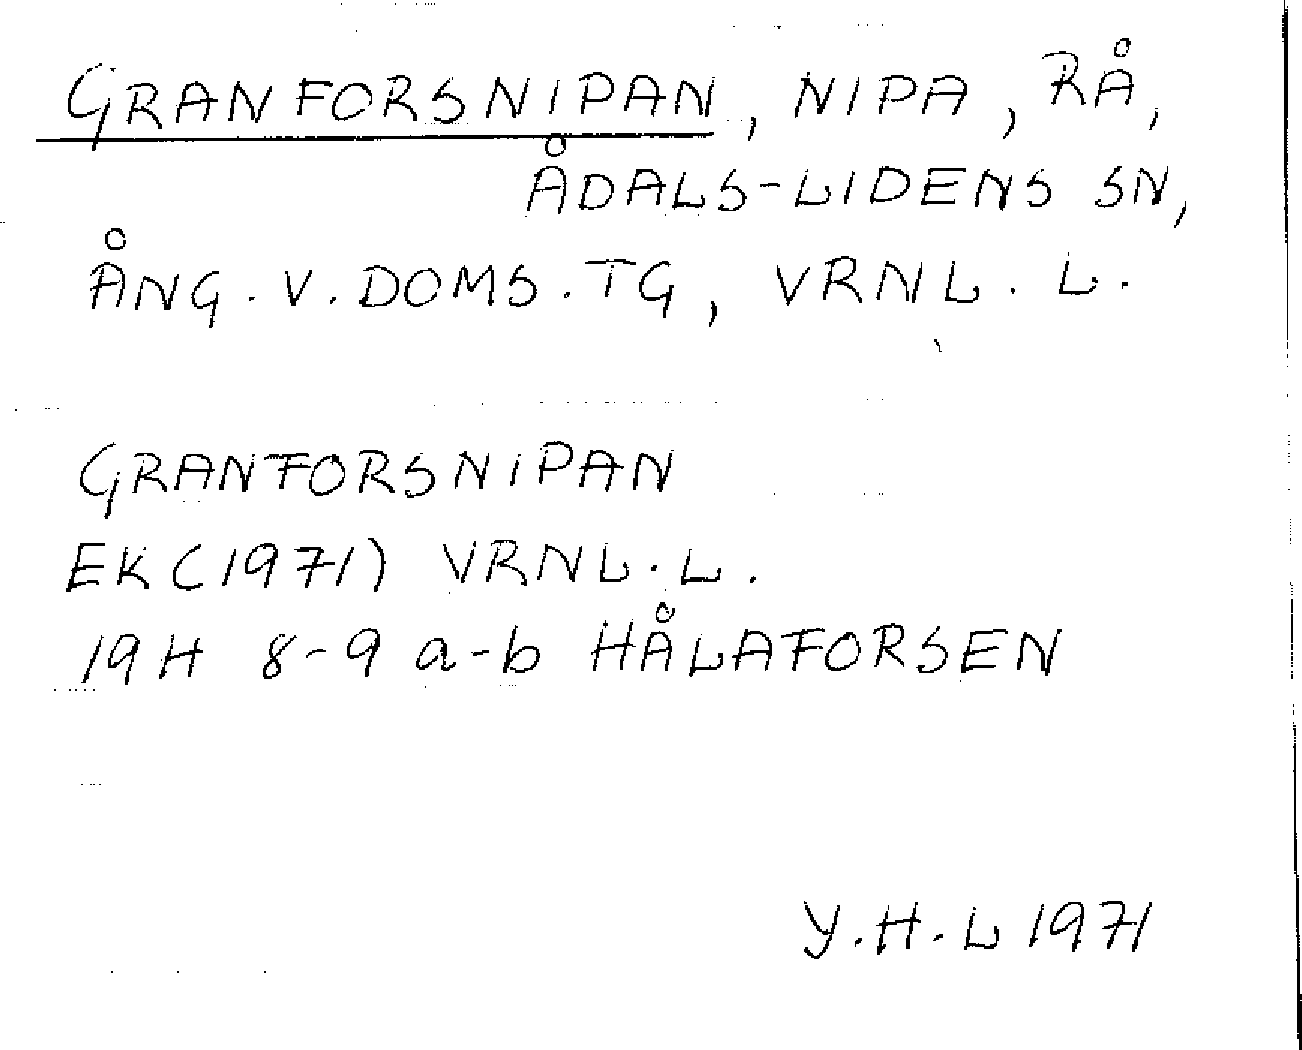 GRANFORSNIPAN, NIPA, RÅ,
ÅDALS-LIDENS SN,
ÅNG. V. DOMS. TG, VRNL. L.
GRANFORSNIPAN
EK (1971) VRNL. L.
19H 8-9 a-b HÅLAFORSEN
Y.H.L 1971